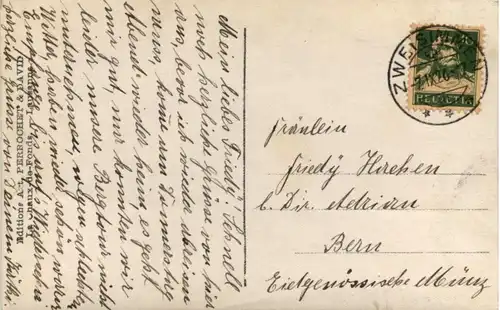 Mein liebes Friedy! Schnell
noch herzliche Grüsse von hier
aus, bevor ich wieder abreisen
muss, komme am Donnerstag
Abend wieder heim, es geht
mir gut, nur konnten wir
leider unsere Bergtour nicht
unternehmen, wegen schlechtem
Wetter, haben wieder sehen
Empfange
herzliche Grüsse von Deinem
Editions Art. PERROCHET & DAVID
La Chaux-de-Fonds
ZWEISIMMEN
HELVETIA
Fräulein
Friedy Hachen
b. Dir. Adrian
Bern
Eidgenössische Münz